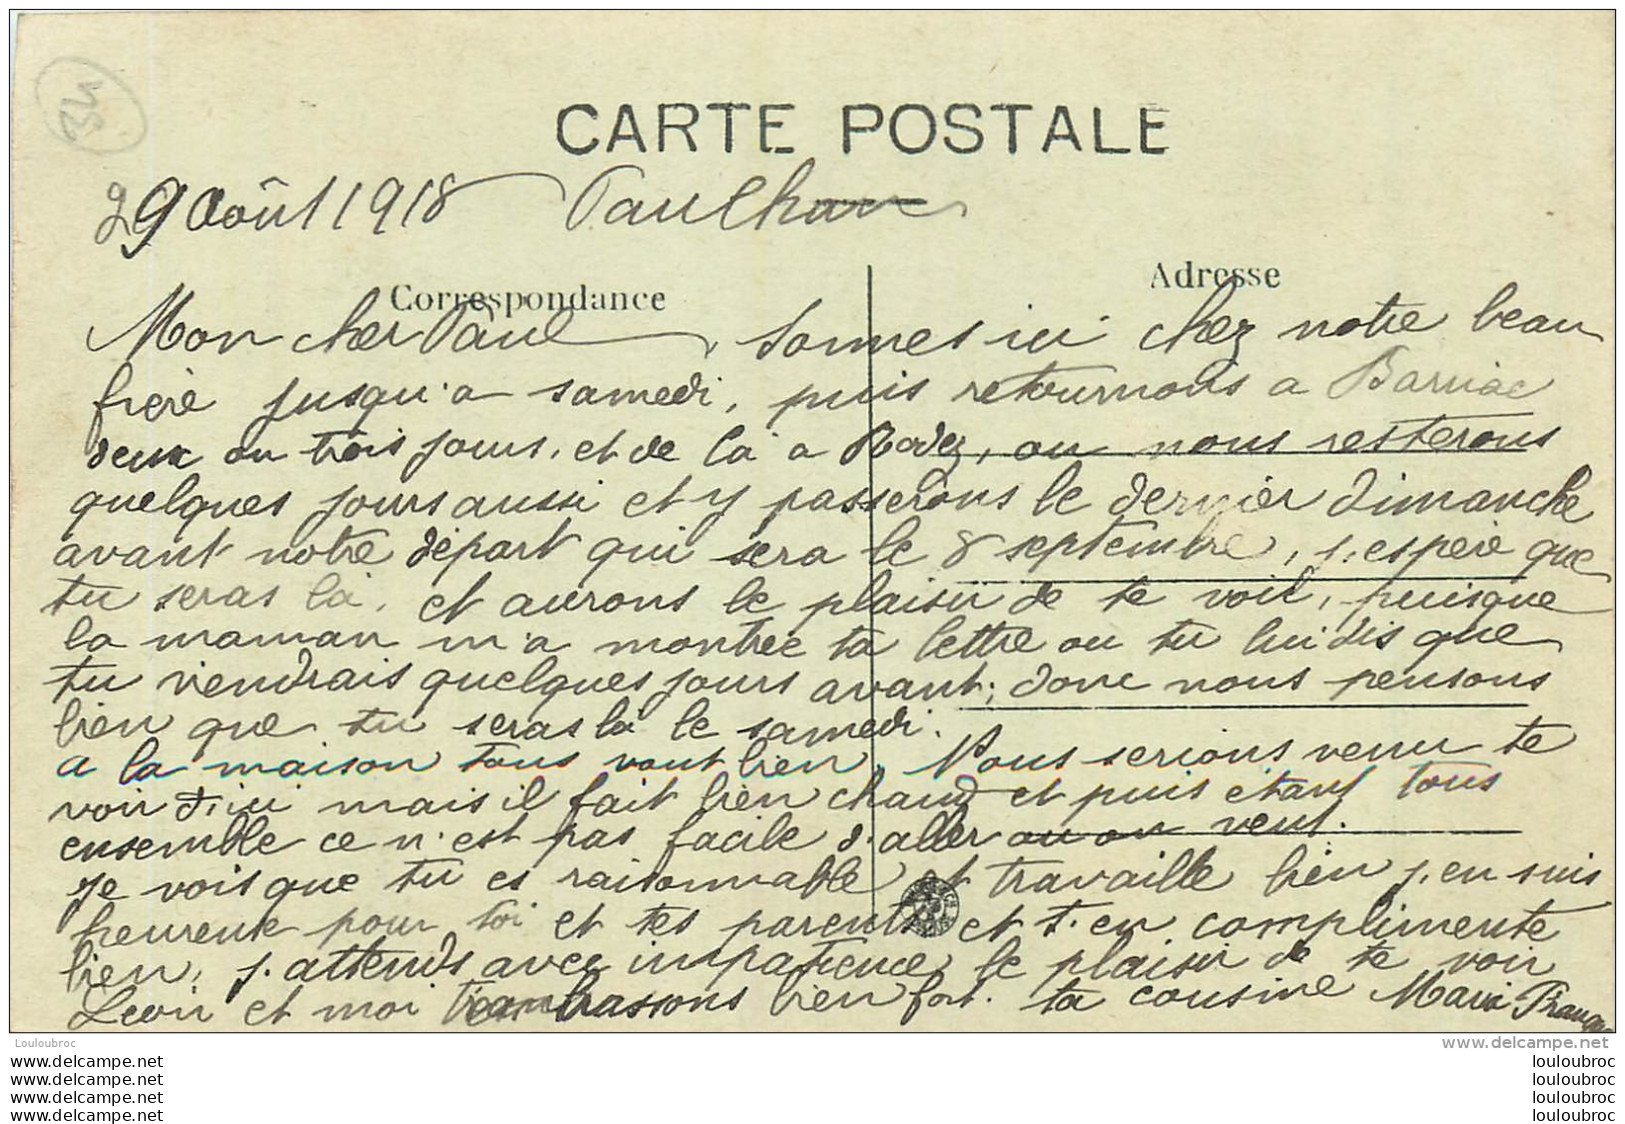 34
CARTE POSTALE
29 Août 1918 Paulhan
Correspondance
Adresse
Mon cher Paul, sommes ici chez notre beau
frère jusqu'a samedi, puis retournons a Barriac
deux ou trois jours, et de là a Rodez, ou nous resterons
quelques jours aussi et y passerons le dernier dimanche
avant notre départ qui sera le 8 septembre, j'espère que
tu seras là, et aurons le plaisir de te voir, puisque
la maman m'a montrée ta lettre ou tu lui dis que
tu viendrais quelques jours avant; donc nous pensons
bien que tu seras là le samedi.
a la maison tous vont bien, Nous serions venu te
voir d'ici mais il fait bien chaud et puis étant tous
ensemble ce n'est pas facile d'aller ou on veut.
Je vois que tu es raisonnable et travaille bien j'en suis
heureuse pour toi et tes parents et t'en complimente
bien, j'attends avec impatience le plaisir de te voir
Léon et moi t'embrassons bien fort. ta cousine Maria
Louloubroc
www.delcampe.net
www.delcampe.net louloubroc
www.delcampe.net louloubroc
www.delcampe.net louloubroc
www.delcampe.net louloubroc